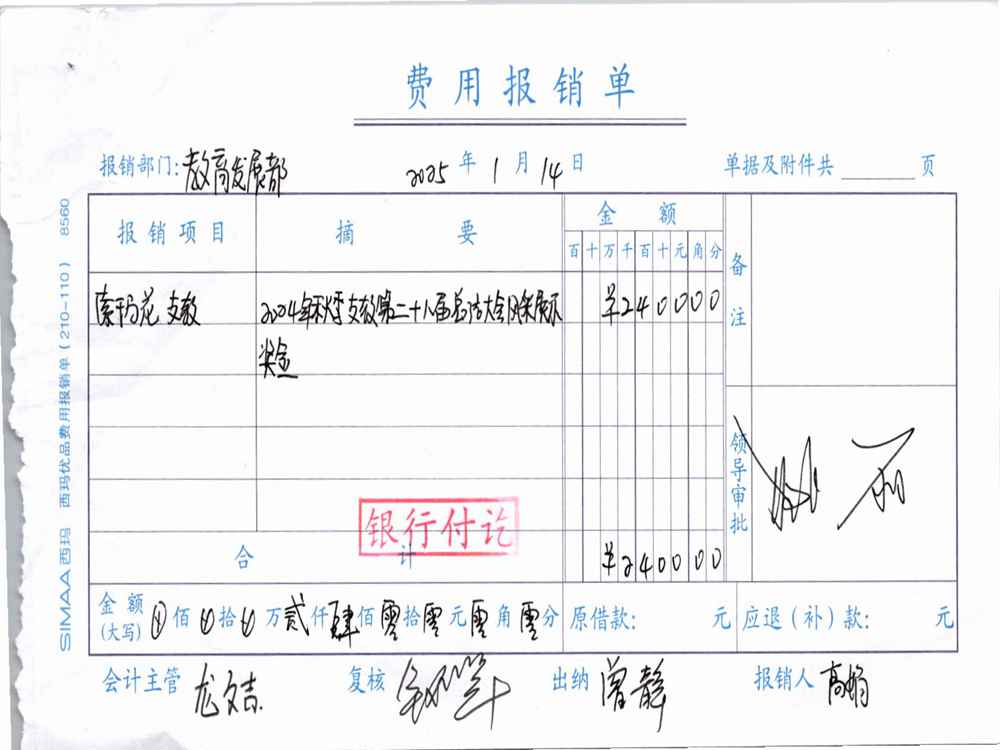 费用报销单
报销部门:教育发展部 2025年1月14日 单据及附件共 页
报销项目 摘要 金额 备注
百十万千百十元角分
索玛花支教 2024年秋季支教第二十八届总结大会风采展示 ¥240000
奖金
领导审批
银行付讫
合计 ¥240000
金额(大写) 佰 拾 万贰仟肆佰零拾零元零角零分 原借款: 元 应退(补)款: 元
会计主管 龙文吉 复核 出纳 曾静 报销人 高娟
SIMAA西玛 西玛优品费用报销单(210-110) 8560